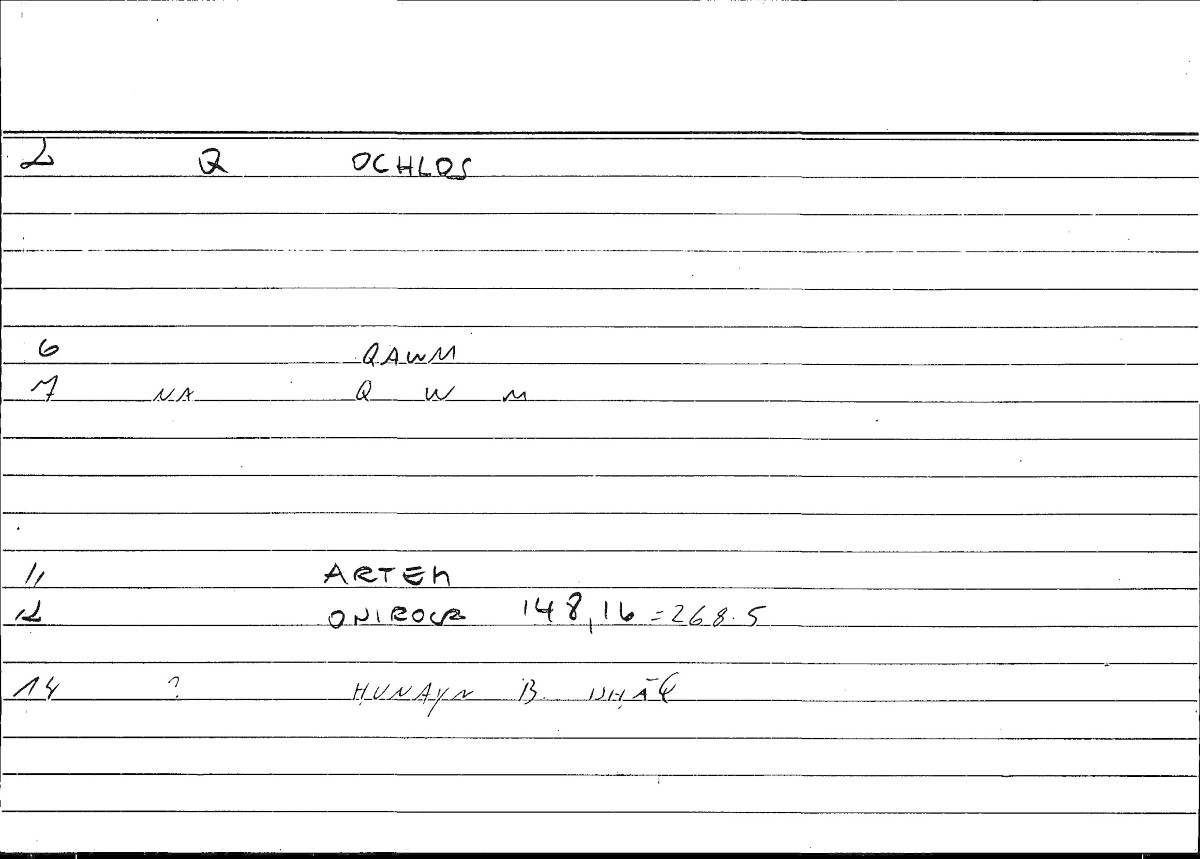 2 Q OCHLOS
6 QAWM
7 NA Q W M
11 ARTEM
12 ONIROCR 148,16 = 268.5
14 ? ḤUNAYN B. ISḤĀQ